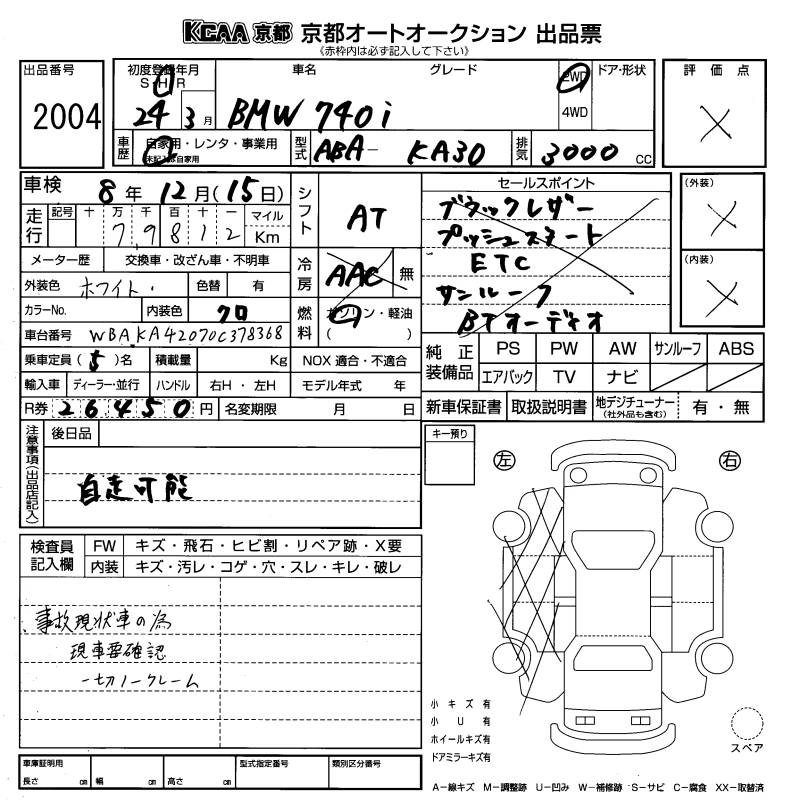 KCAA 京都 京都オートオークション 出品票
《赤枠内は必ず記入して下さい》
出品番号
2004
初度登録年月
S H R
24 3 月
車名
グレード
BMW 740i
2WD
4WD
ドア・形状
評価点
車歴
自家用・レンタ・事業用
未記入は自家用
型式
ABA- KA30
排気
3000 CC
車検
8年 12月(15日)
シフト
AT
セールスポイント
ブラックレザー
プッシュスタート
ETC
サンルーフ
BTオーディオ
(外装)
(内装)
走行
記号 十 万 千 百 十 一 マイル
7 9 8 1 2 Km
メーター歴
交換車・改ざん車・不明車
冷房
AAC
無
外装色
ホワイト
色替
有
カラーNo.
内装色
クロ
燃料
ガソリン・軽油
( )
車台番号
WBAKA42070C378368
乗車定員(5)名
積載量
Kg
NOX 適合・不適合
輸入車
ディーラー・並行
ハンドル
右H・左H
モデル年式 年
R券 26450円
名変期限 月 日
純正装備品
PS PW AW サンルーフ ABS
エアバック TV ナビ
新車保証書
取扱説明書
地デジチューナー
(社外品も含む)
有・無
注意事項(出品店記入)
後日品
自走可能
キー預り
左
右
検査員記入欄
FW
キズ・飛石・ヒビ割・リペア跡・X要
内装
キズ・汚レ・コゲ・穴・スレ・キレ・破レ
事故現状車の為
現車要確認
一切ノークレーム
小キズ有
小U有
ホイールキズ有
ドアミラーキズ有
スペア
車庫証明用
長さ cm 幅 cm 高さ cm
型式指定番号
類別区分番号
A-線キズ M-調整跡 U-凹み W-補修跡 S-サビ C-腐食 XX-取替済